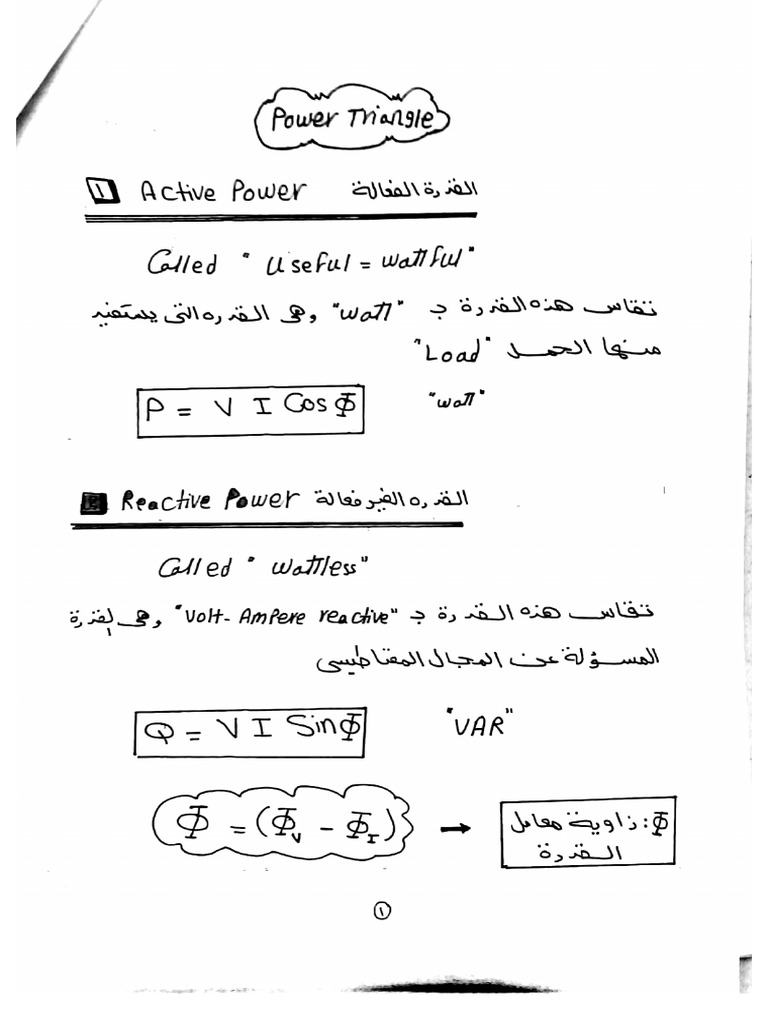 Power Triangle
1 Active Power القدرة الفعالة
Called "Useful = wattful"
تقاس هذه القدرة بـ "watt" وهى القدره التى يستفيد
منها الحمل "Load"
P = V I Cos Φ "watt"
2 Reactive Power القدره الغير فعالة
Called "wattless"
تقاس هذه القدرة بـ "Volt-Ampere reactive" وهى القدرة
المسؤلة عن المجال المغناطيسى
Q = V I Sin Φ "VAR"
Φ = (Φ_V - Φ_I) → Φ: زاوية معامل
القدرة
1